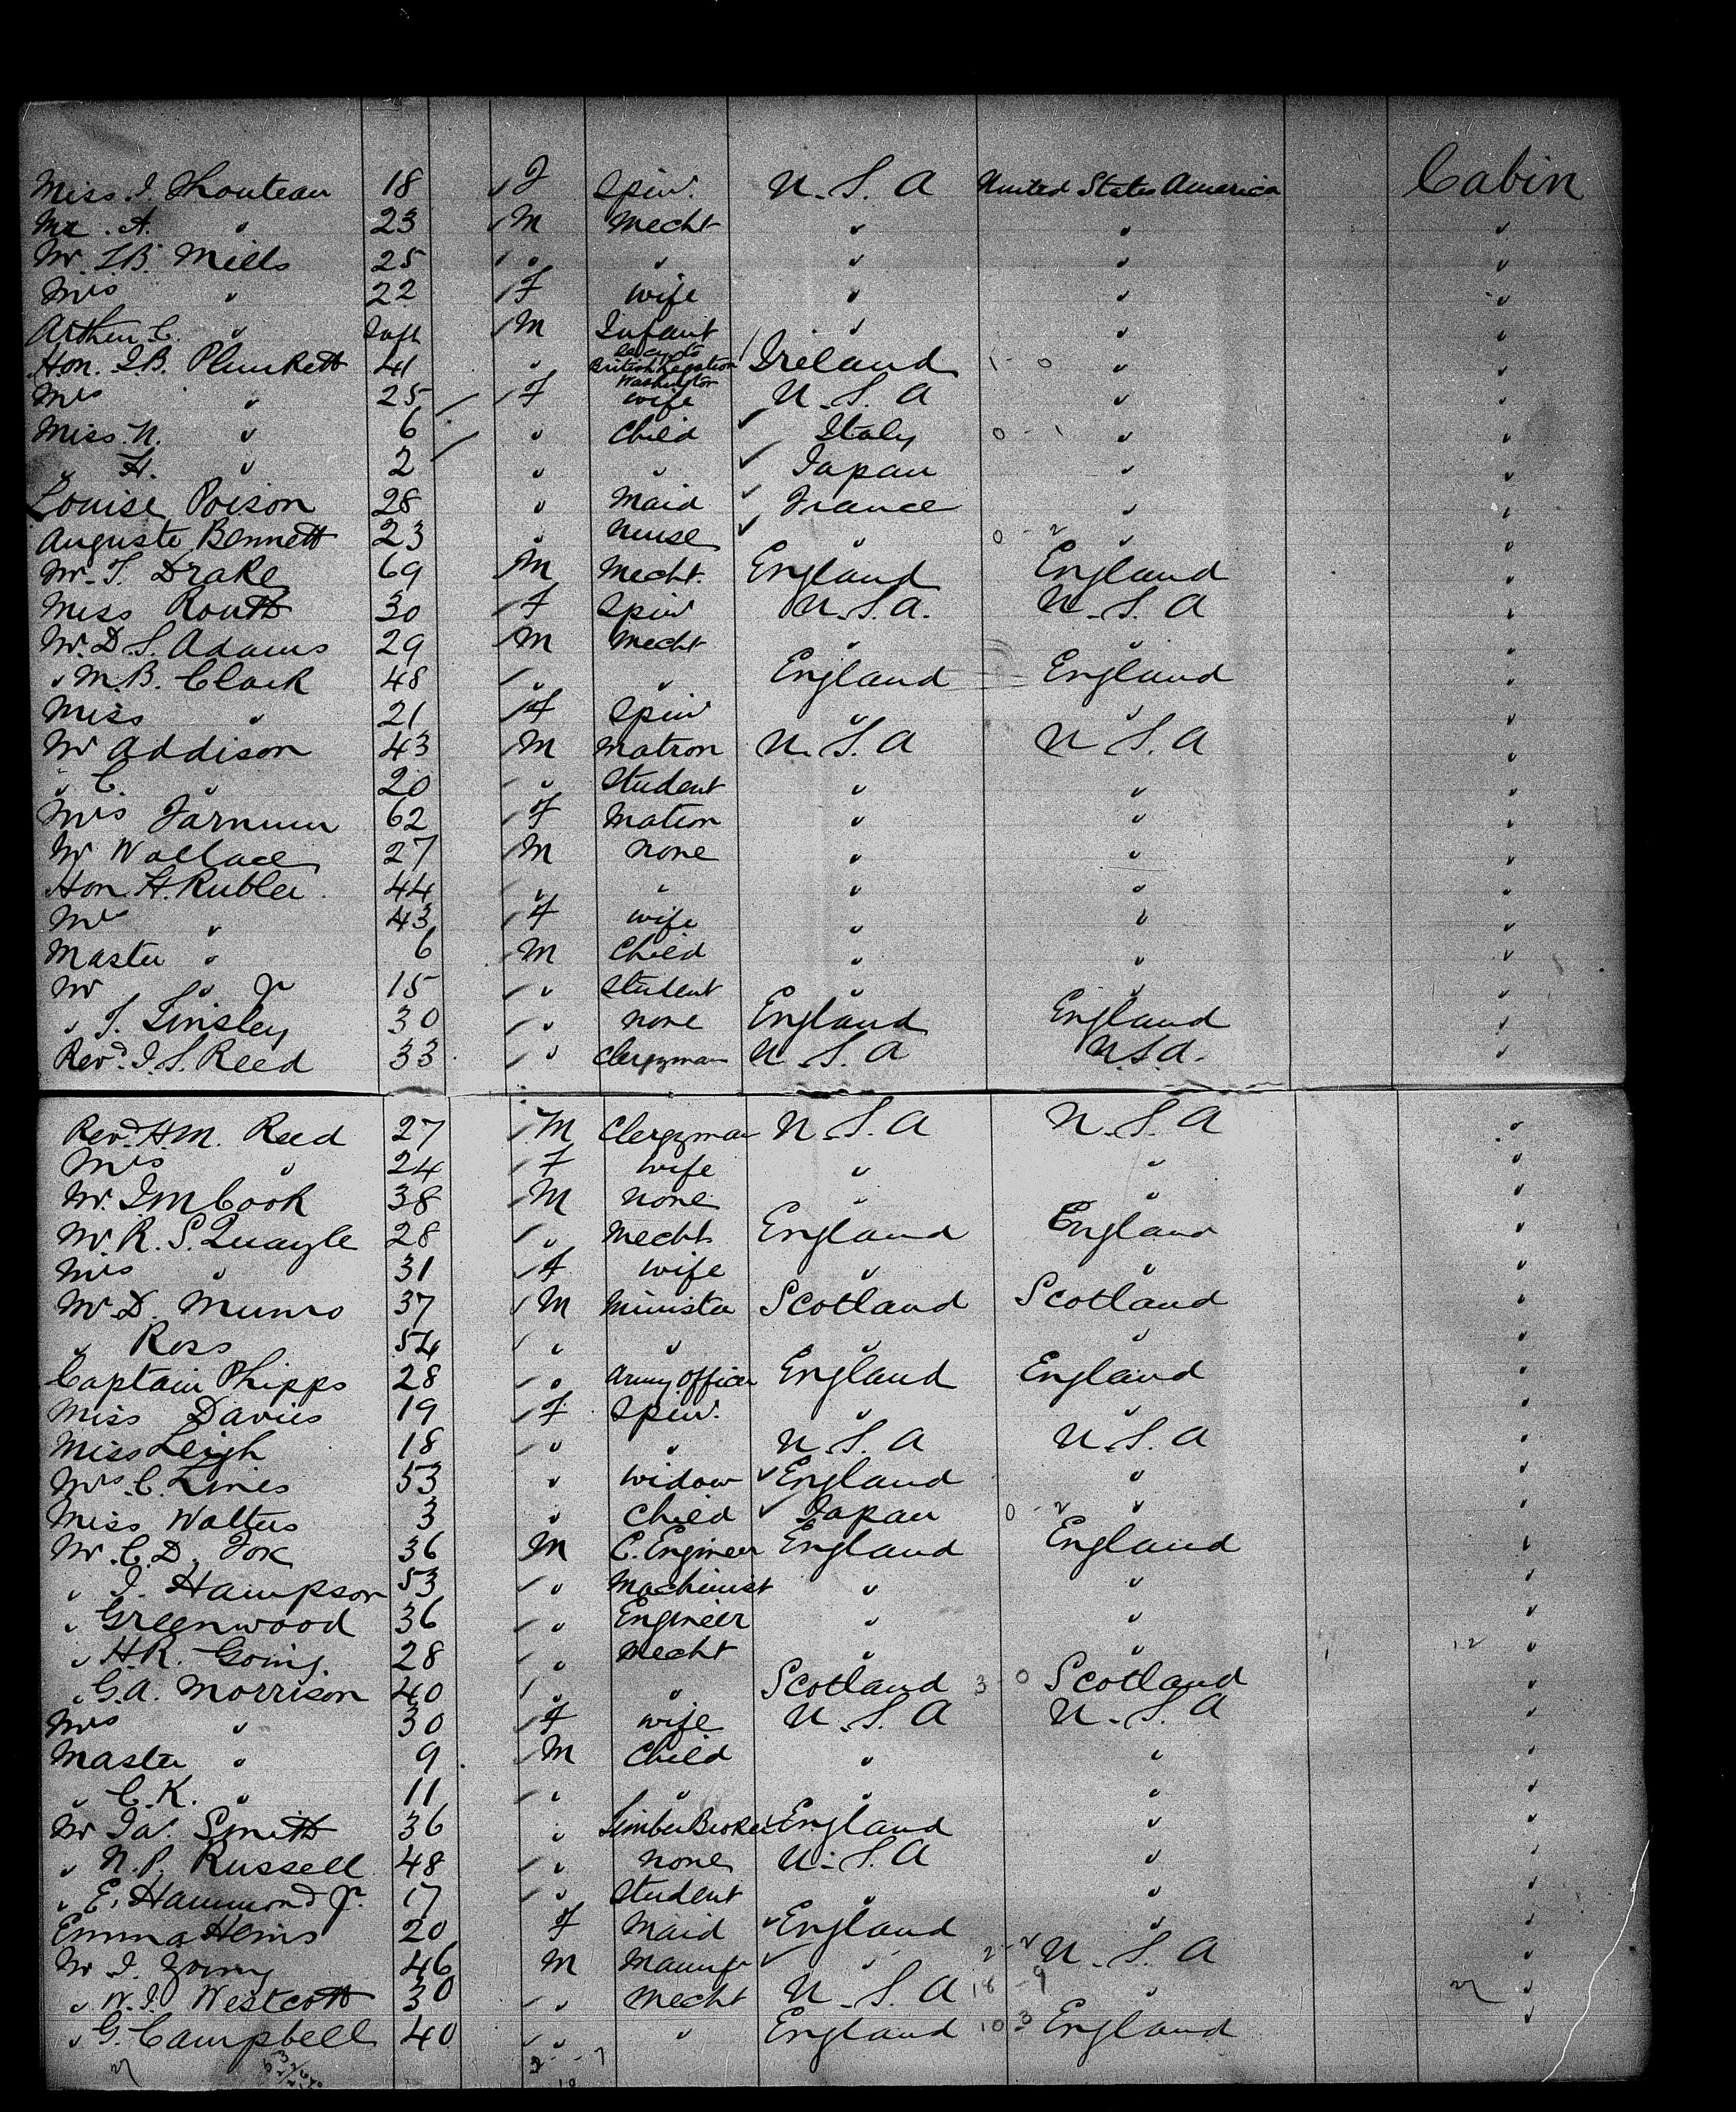 Miss. I. Thouteau 18 F Spinr. U.S.A United States America Cabin
Mr. A. " 23 M Mecht " " "
Mr. I.B. Mills 25 " " " " "
Mrs " 22 F Wife " " "
Arthur C. " Inft M Infant " " "
Hon. I.B. Plunkett 41 " Secy to British Legation Washington Ireland " "
Mrs " 25 F Wife U.S.A " "
Miss. N. " 6 " Child Italy " "
" H. " 2 " " Japan " "
Louise Poison 28 " Maid France " "
Auguste Bennett 23 " Nurse " " "
Mr. T. Drake 69 M Mecht. England England "
Miss Routt 30 F Spinr U.S.A. U.S.A "
Mr. D.S. Adams 29 M Mecht " " "
" M.B. Clark 48 " " England England "
Miss " 21 F Spinr " " "
Mr Addison 43 M Matron U.S.A U.S.A "
" C. " 20 " Student " " "
Mrs Farnum 62 F Matron " " "
Mr Wallace 27 M None " " "
Hon. H. Rublee 44 " " " " "
Mrs " 43 F Wife " " "
Master " 6 M Child " " "
Mr " Jr 15 " Student " " "
" T. Tinsley 30 " None England England "
Revd. I.S. Reed 33 " Clergyman U.S.A U.S.A. "
Revd. H.M. Reed 27 M Clergyman U.S.A U.S.A "
Mrs " 24 F Wife " " "
Mr. I M Cook 38 M None " " "
Mr. R.S. Quayle 28 " Mecht England England "
Mrs " 31 F Wife " " "
Mr D. Munro 37 M Minister Scotland Scotland "
" Ross 54 " " " " "
Captain Phipps 28 " Army Officer England England "
Miss Davies 19 F Spinr. " " "
Miss Leigh 18 " " U.S.A U.S.A "
Mrs. C. Lines 53 " Widow England " "
Miss Walters 3 " Child Japan " "
Mr. C.D. Fox 36 M C. Engineer England England "
" I. Hampson 53 " Machinist " " "
" Greenwood 36 " Engineer " " "
" H.R. Going. 28 " Mecht " " "
" G.A. Morrison 40 " " Scotland 3 0 Scotland "
Mrs " 30 F Wife U.S.A U.S.A "
Master " 9 M Child " " "
" C.K. " 11 " " " " "
Mr Jas. Smith 36 " Timber Broker England " "
" N.P. Russell 48 " None U.S.A " "
" E. Hammond Jr. 17 " Student " " "
Emma Hems 20 F Maid England " "
Mr I. Young 46 M Manufr " U.S.A "
" W.I. Westcott 30 " Mecht U.S.A 18 9 " "
" G. Campbell 40 " " England 10 3 England "